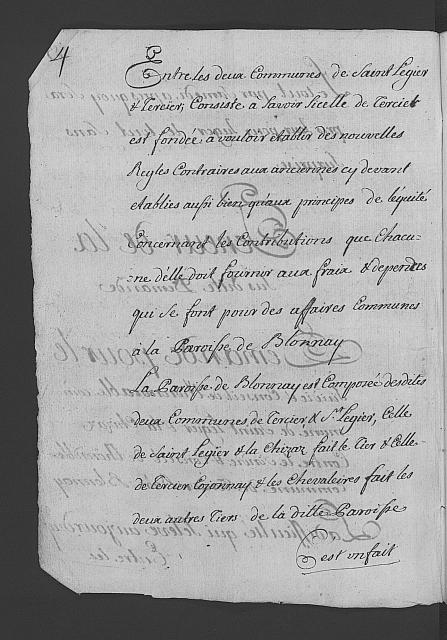 4
Entre les deux Communes de Saint Legier
& Tercier; Consiste a Savoir si celle de Tercier
est fondée a vouloir etablir des nouvelles
Regles Contraires aux anciennes cy devant
etablies aussi bien qu'aux principes de l'equité
Concernant les Contributions que Chacu-
:ne d'elle doit fournir aux fraix & dependes
qui se font pour des affaires Communes
a la Paroisse de Blonnay
La Paroisse de Blonnay est Composée desdites
deux Communes, de Tercier, & St. Legier, Celle
de Saint Legier & la Chizaz fait le Tier & Celle
de Tercier Cojonnay & les Chevaleires fait les
deux autres Tiers de la ditte Paroisse
est un fait